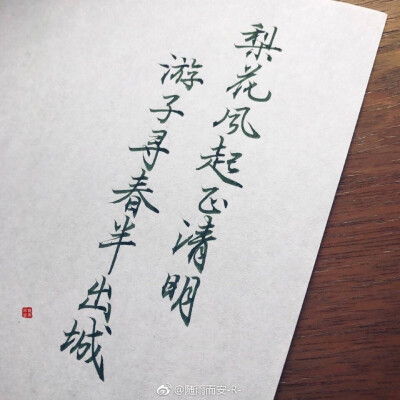 梨花风起正清明
游子寻春半出城
@随门而安-R-